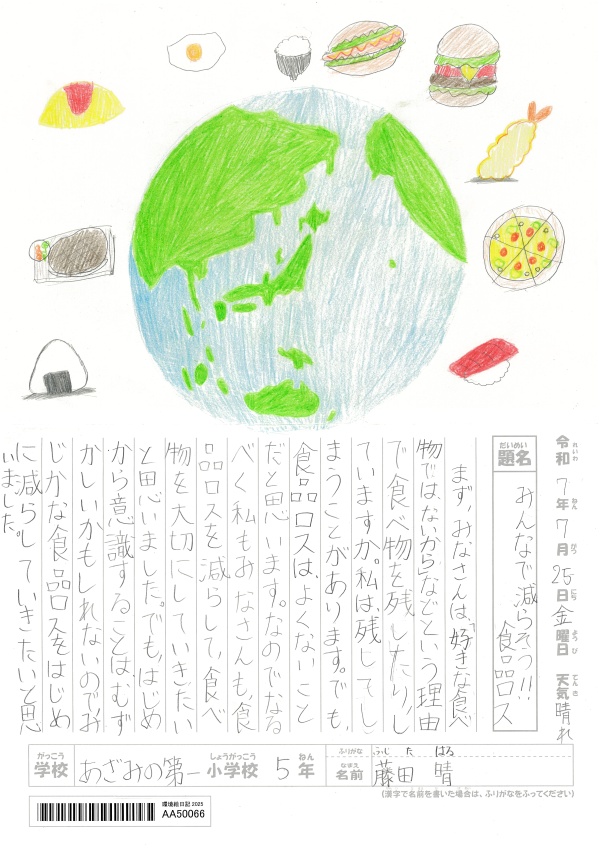 令和7年7月25日金曜日 天気晴れ
れいわ ねん がつ にち ようび てんき
だいめい
題名
みんなで減らそう!!
食品ロス
まず、みなさんは、「好きな食べ
物ではないから」などという理由
で食べ物を残したり、し
ていますか。私は残してし
まうことがあります。でも、
食品ロスは、よくないこと
だと思います。なのでなる
べく私もみなさんも、食
品ロスを減らして、食べ
物を大切にしていきたい
と思いました。でも、はじめ
から意識することは、むず
かしいかもしれないので、み
じかな食品ロスをはじめ
に減らしていきたいと思
いました。
がっこう しょうがっこう ねん
学校 あざみの第一小学校 5年
ふりがな ふじ た はる
なまえ
名前 藤田 晴
(漢字で名前を書いた場合は、ふりがなをふってください)
環境絵日記 2025
AA50066